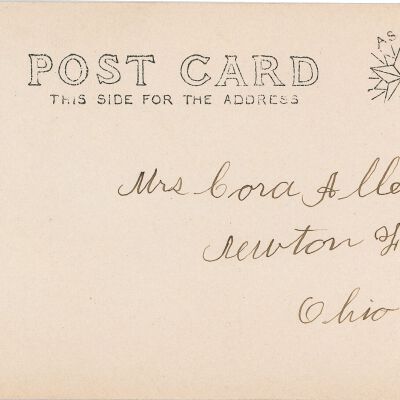 POST CARD
THIS SIDE FOR THE ADDRESS
Mrs Cora Alle
Newton F
Ohio